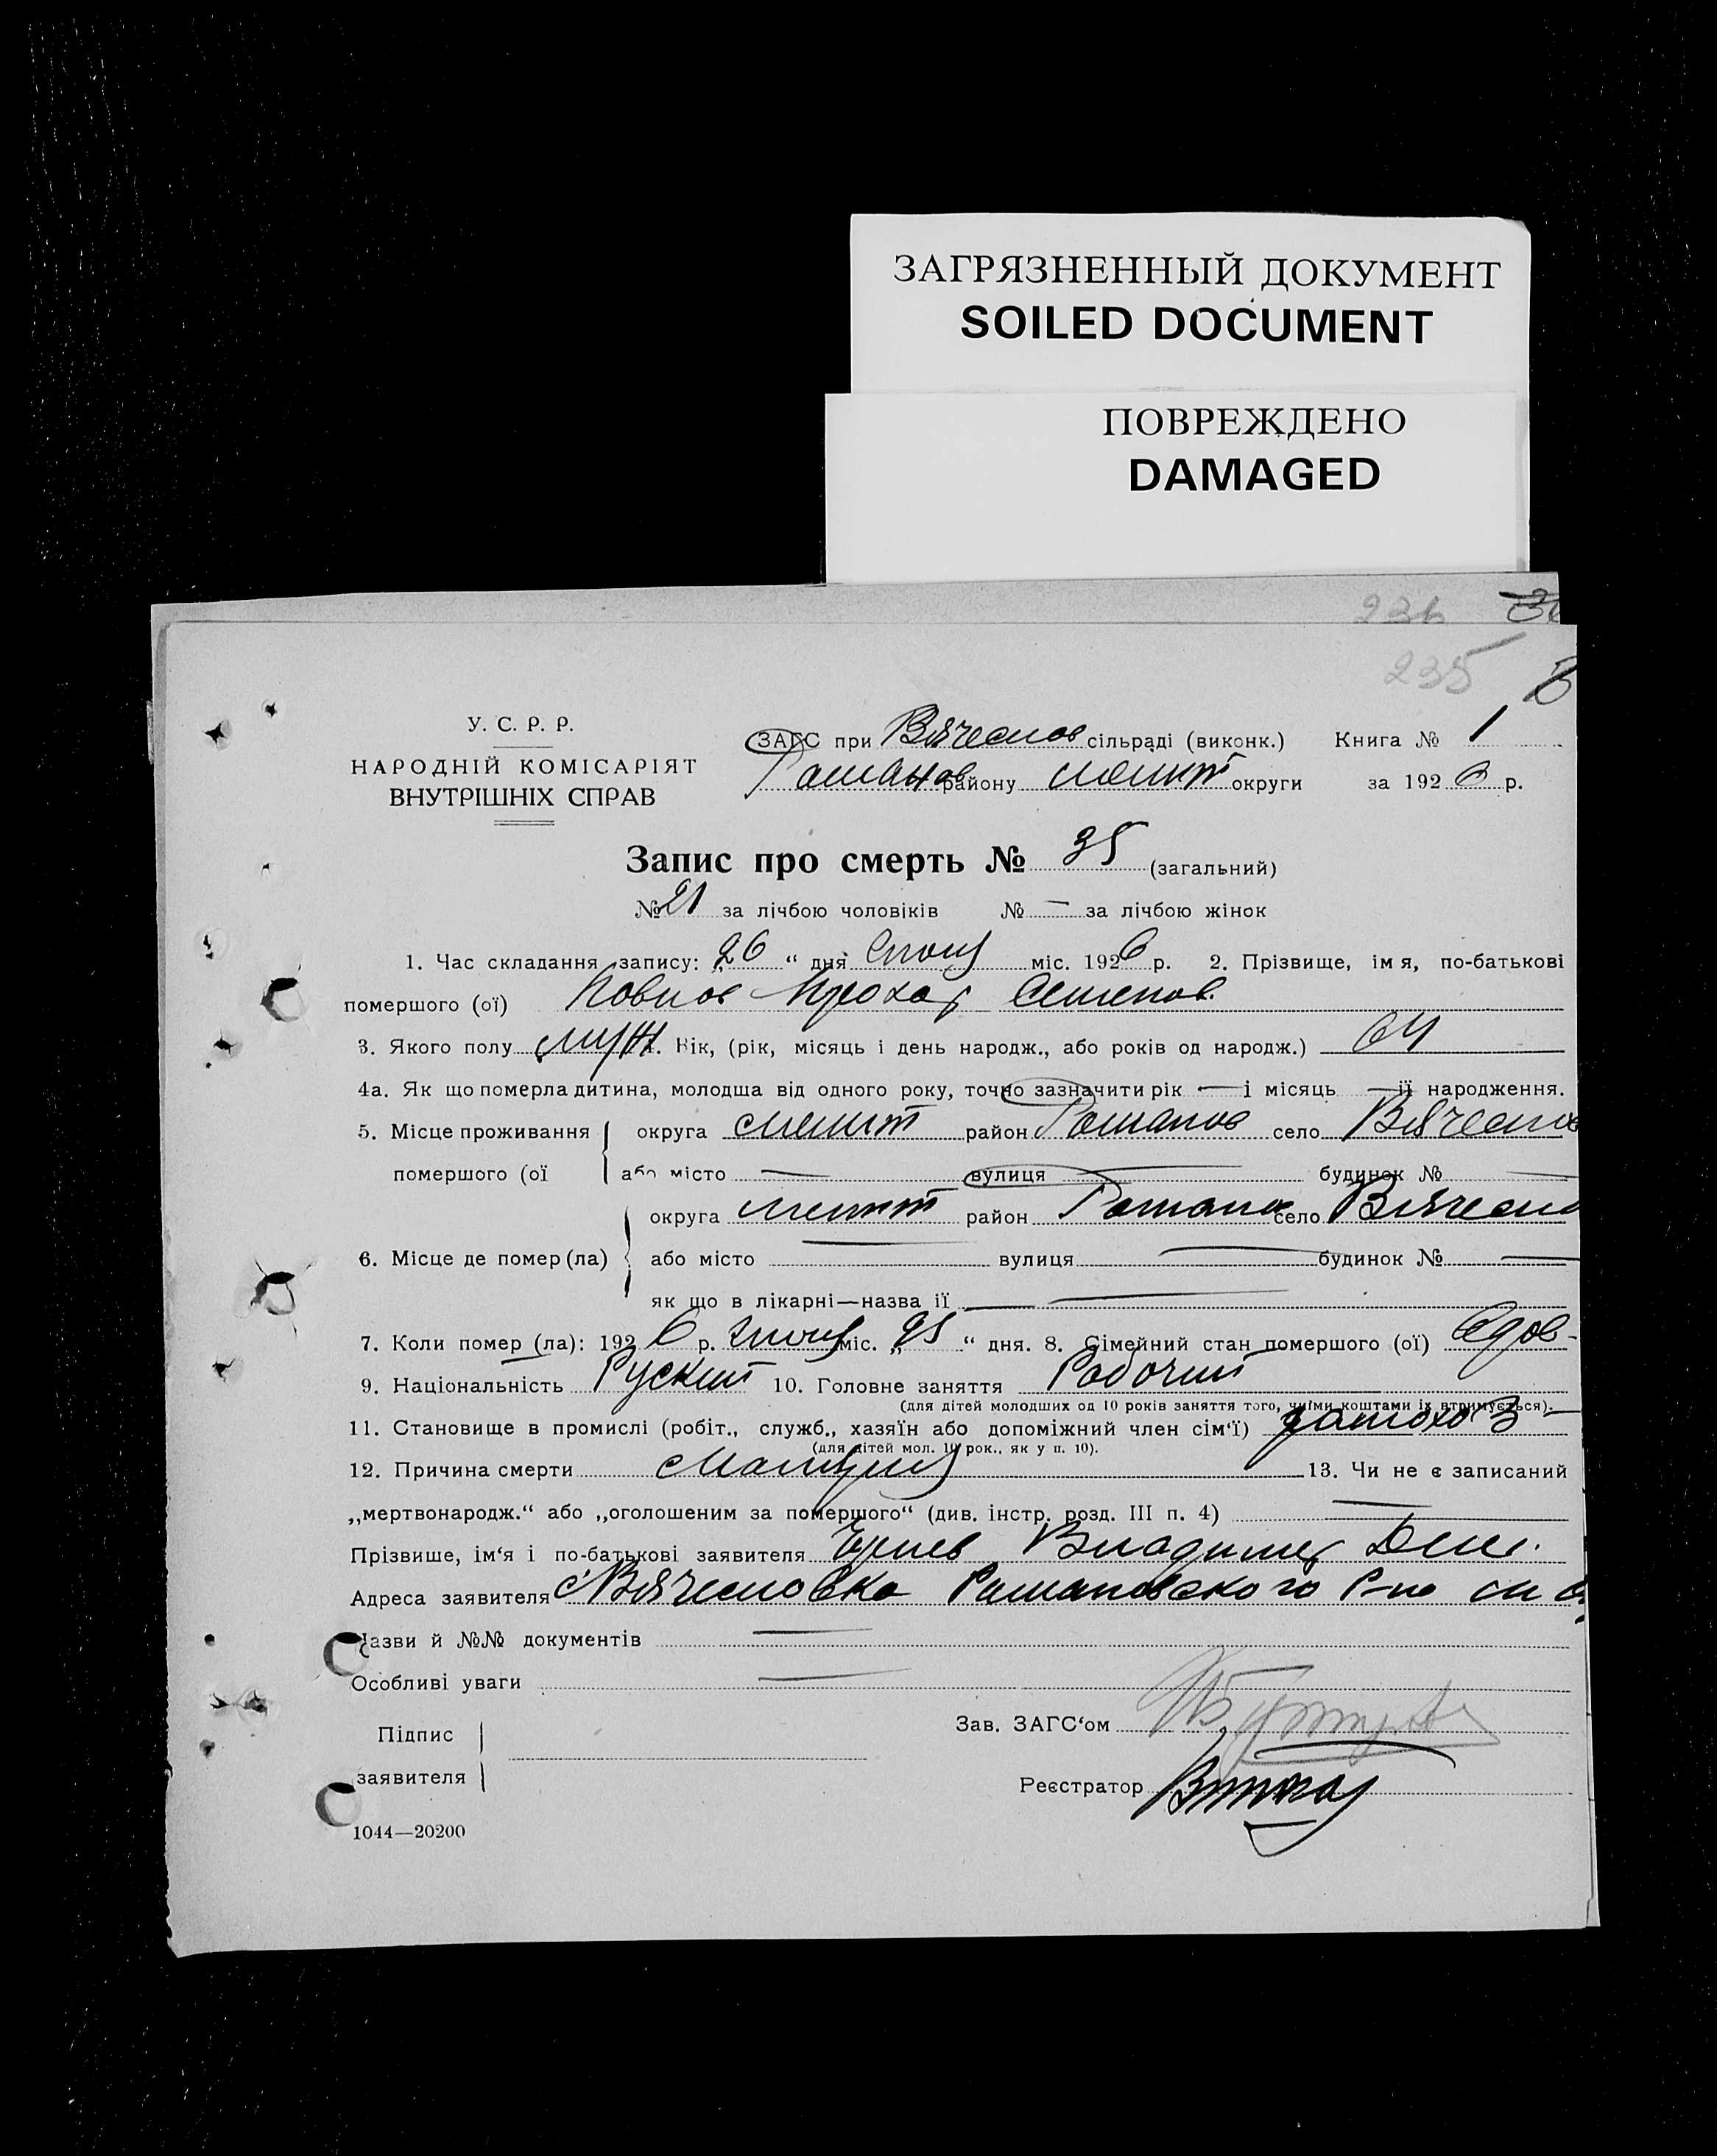 ЗАГРЯЗНЕННЫЙ ДОКУМЕНТ
SOILED DOCUMENT
ПОВРЕЖДЕНО
DAMAGED
236
235
У. С. Р. Р.
НАРОДНІЙ КОМІСАРІЯТ
ВНУТРІШНІХ СПРАВ
ЗАГС при Вячеслов сільраді (виконк.) Книга № 1
Романов району мелит округи за 1926 р.
Запис про смерть № 35 (загальний)
№ 21 за лічбою чоловіків № — за лічбою жінок
1. Час складання запису: „26“ дня міс. 1926 р. 2. Прізвище, ім я, по-батькові
помершого (ої) Прохор Семенов.
3. Якого полу муж. Вік, (рік, місяць і день народж., або років од народж.) 64
4а. Як що померла дитина, молодша від одного року, точно зазначити рік — і місяць — її народження.
5. Місце проживання округа мелит район Романов село Вячеслов
помершого (ої або місто — вулиця — будинок № —
округа мелит район Романов село Вячесло
6. Місце де помер (ла) або місто — вулиця — будинок № —
як що в лікарні—назва її —
7. Коли помер (ла): 1926 р. міс. „25“ дня. 8. Сімейний стан помершого (ої) Вдов-
9. Національність Руский 10. Головне заняття Рабочий
(для дітей молодших од 10 років заняття того, чиїми коштами їх втримується).
11. Становище в промислі (робіт., служб., хазяїн або допоміжний член сім‘ї)
(для дітей мол. 10 рок., як у п. 10).
12. Причина смерти 13. Чи не є записаний
„мертвонародж.“ або „оголошеним за помершого“ (див. інстр. розд. III п. 4) —
Прізвише, ім‘я і по-батькові заявителя Владимир
Адреса заявителя с Вячесловка Романовского Р-на
Назви й №№ документів —
Особливі уваги —
Підпис
заявителя
Зав. ЗАГС‘ом
Реєстратор
1044—20200